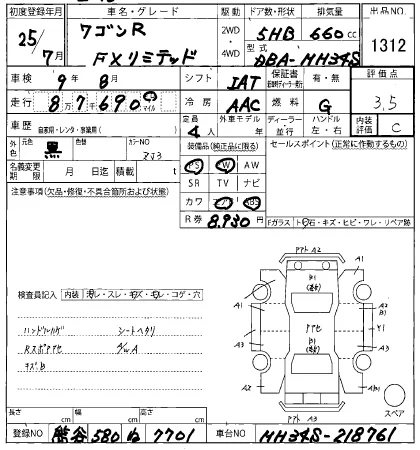 初度登録年月 車名・グレード 駆動 ドア数・形状 排気量 出品NO
25年7月 ワゴンR FXリミテッド 2WD・4WD 5HB 660cc 1312
型式 DBA-MH34S
車検 9年8月 シフト IAT 保証書 有・無 評価点
走行 87690 km マイル 冷房 AAC 燃料 G 3.5
車歴 自家用・レンタ・事業用( ) 定員 4人 外車モデル 年 ディーラー・並行 ハンドル 左・右 内装評価 C
外色 元色 黒 色替 カラーNO ZJ3 装備品(純正品に限る) セールスポイント(正常に作動するもの)
名義変更期限 月 日迄 積載 t PS PW AW
注意事項(欠品・修復・不具合箇所および状態) SR TV ナビ
カワ エアB ABS
R券 8,930円 Fガラス トビ石・キズ・ヒビ・ワレ・リペア跡
アト A2
A1 B1 A1
検査員記入 内装 ヨゴレ・スレ・キズ・モレ・コゲ・穴
A1 A2 B1
ハンドルハゲ シートヘタリ アトセ Y1
A3 B1 A3
A2 AB1
長さ cm 幅 cm 高さ cm アト A3 スペア
登録NO 熊谷 580 ぬ 7701 車台NO MH34S-218761